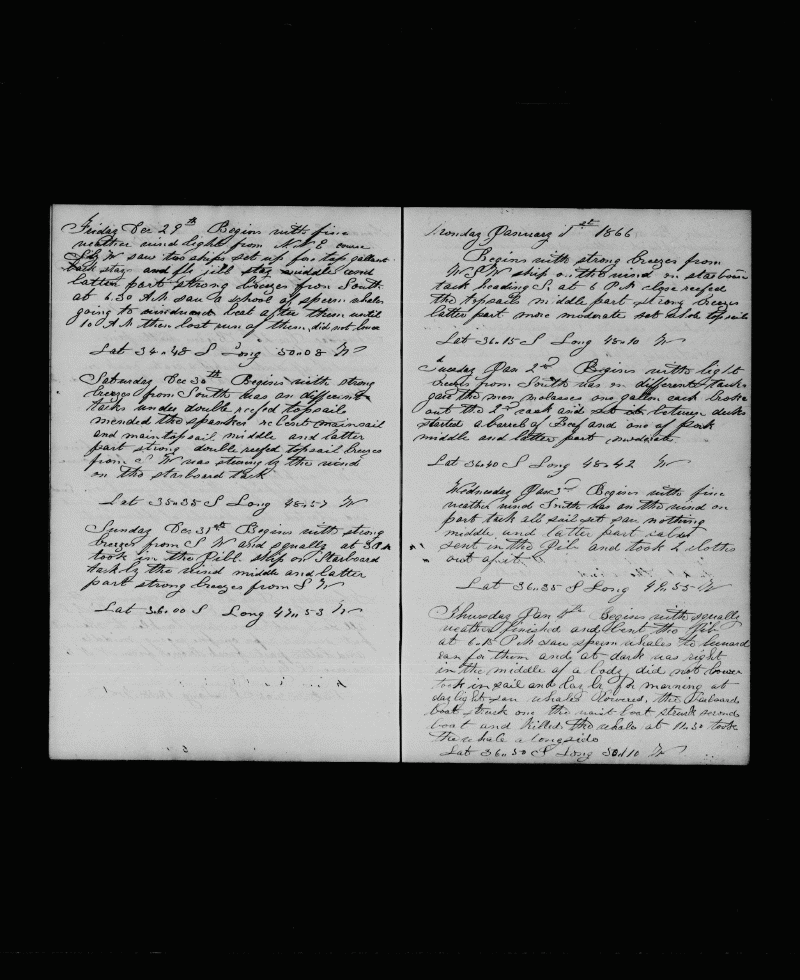 Friday Dec 29th Begins with fine
weather wind light from N.N.E course
S by W saw two ships set up fore top gallant
back stays and flo jibb stay middle and
latter part strong breezes from South
at 6.30 A.M saw a school of sperm whales
going to windward beat after them until
10 A.M then lost run of them, did not lower
Lat 34"48 S Long 50"08 W
Saturday Dec 30th Begins with strong
breezes from South was on different
tacks under double reefed topsails
mended the spanker rebent mainsail
and maintopsail middle and latter
part strong double reefed topsail breezes
from S W was steering by the wind
on the starboard tack
Lat 35"35 S Long 48"57 W
Sunday Dec 31st Begins with strong
breezes from S W and squally at
took in the Jibb. ship on Starboard
tack by the wind middle and latter
part strong breezes from S W
Lat 36"00 S Long 47"53 W
Monday January 1st 1866
Begins with strong breezes from
W S W ship on the wind on starboard
tack heading S. at 6 P.M close reefed
the topsails middle part strong breezes
latter part more moderate set whole topsails
Lat 36"15 S Long 48"10 W
Tuesday Jan 2nd Begins with light
breezes from South was on different tacks
gave the men molasses one gallon each broke
out the 2nd cask and set it between decks
started a barrel of Beef and one of pork
middle and latter part moderate.
Lat 36"40 S Long 48"42 W
Wednesday Jan 3rd Begins with fine
weather wind South was on the wind on
port tack all sail set saw nothing
middle and latter part calm
sent in the Jib and took 2 cloths
out of it.
Lat 36"35 S Long 49"55 W
Thursday Jan 4th Begins with squally
weather finished and bent the Jib
at 6 P.M saw sperm whales to leeward
ran for them and at dark was right
in the middle of a body did not lower
took in sail and lay by in morning at
daylight saw whales lowered, the starboard
boat struck one the waist boat struck second
boat and killed the whale at 11.30 took
the whale alongside
Lat 36"50 S Long 50"10 W